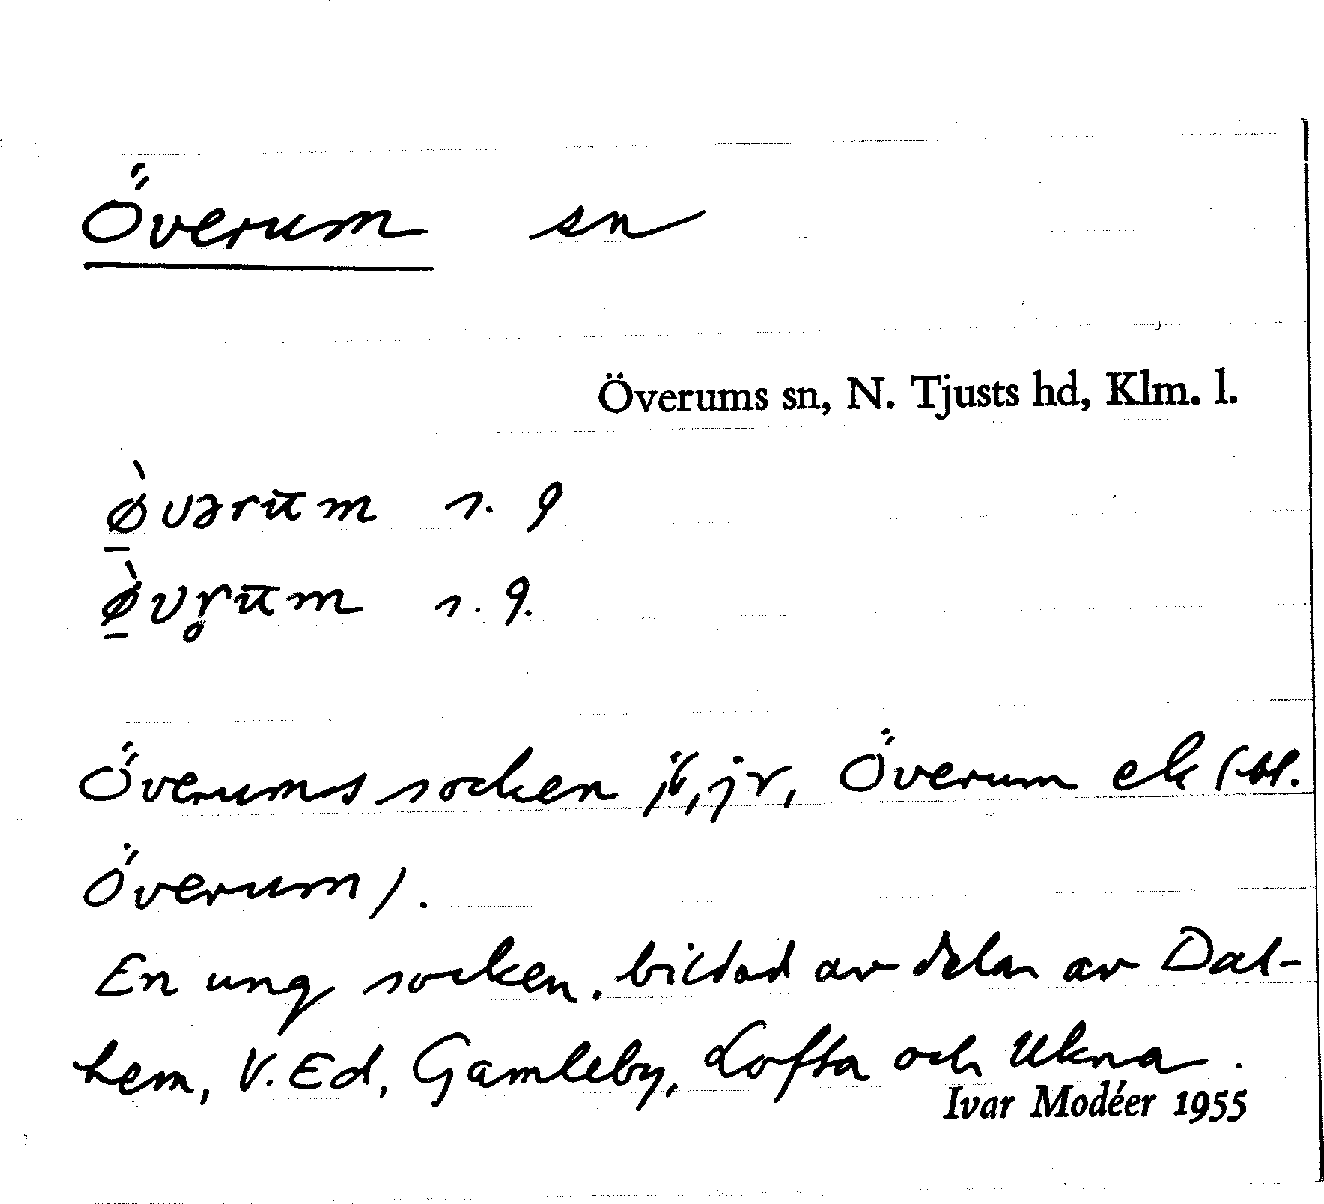 Överum sn
Överums sn, N. Tjusts hd, Klm. l.
ø̲̀vərūm s. g
ø̲̀vr̥ūm s. g.
Överums socken jb, jr, Överum ek (bl.
Överum).
En ung socken, bildad av delar av Dal-
hem, V. Ed, Gamleby, Lofta och Ukna.
Ivar Modéer 1955